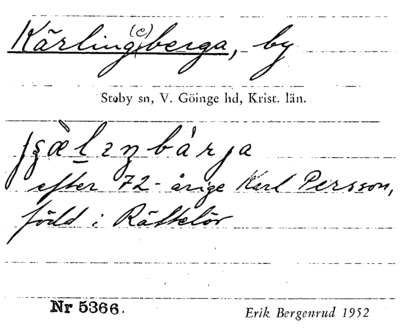 Kärling(e)berga, by
Stoby sn, V. Göinge hd, Krist. län.
efter 72-årige Karl Persson,
född i Rättelöv
Nr 5366.
Erik Bergenrud 1952